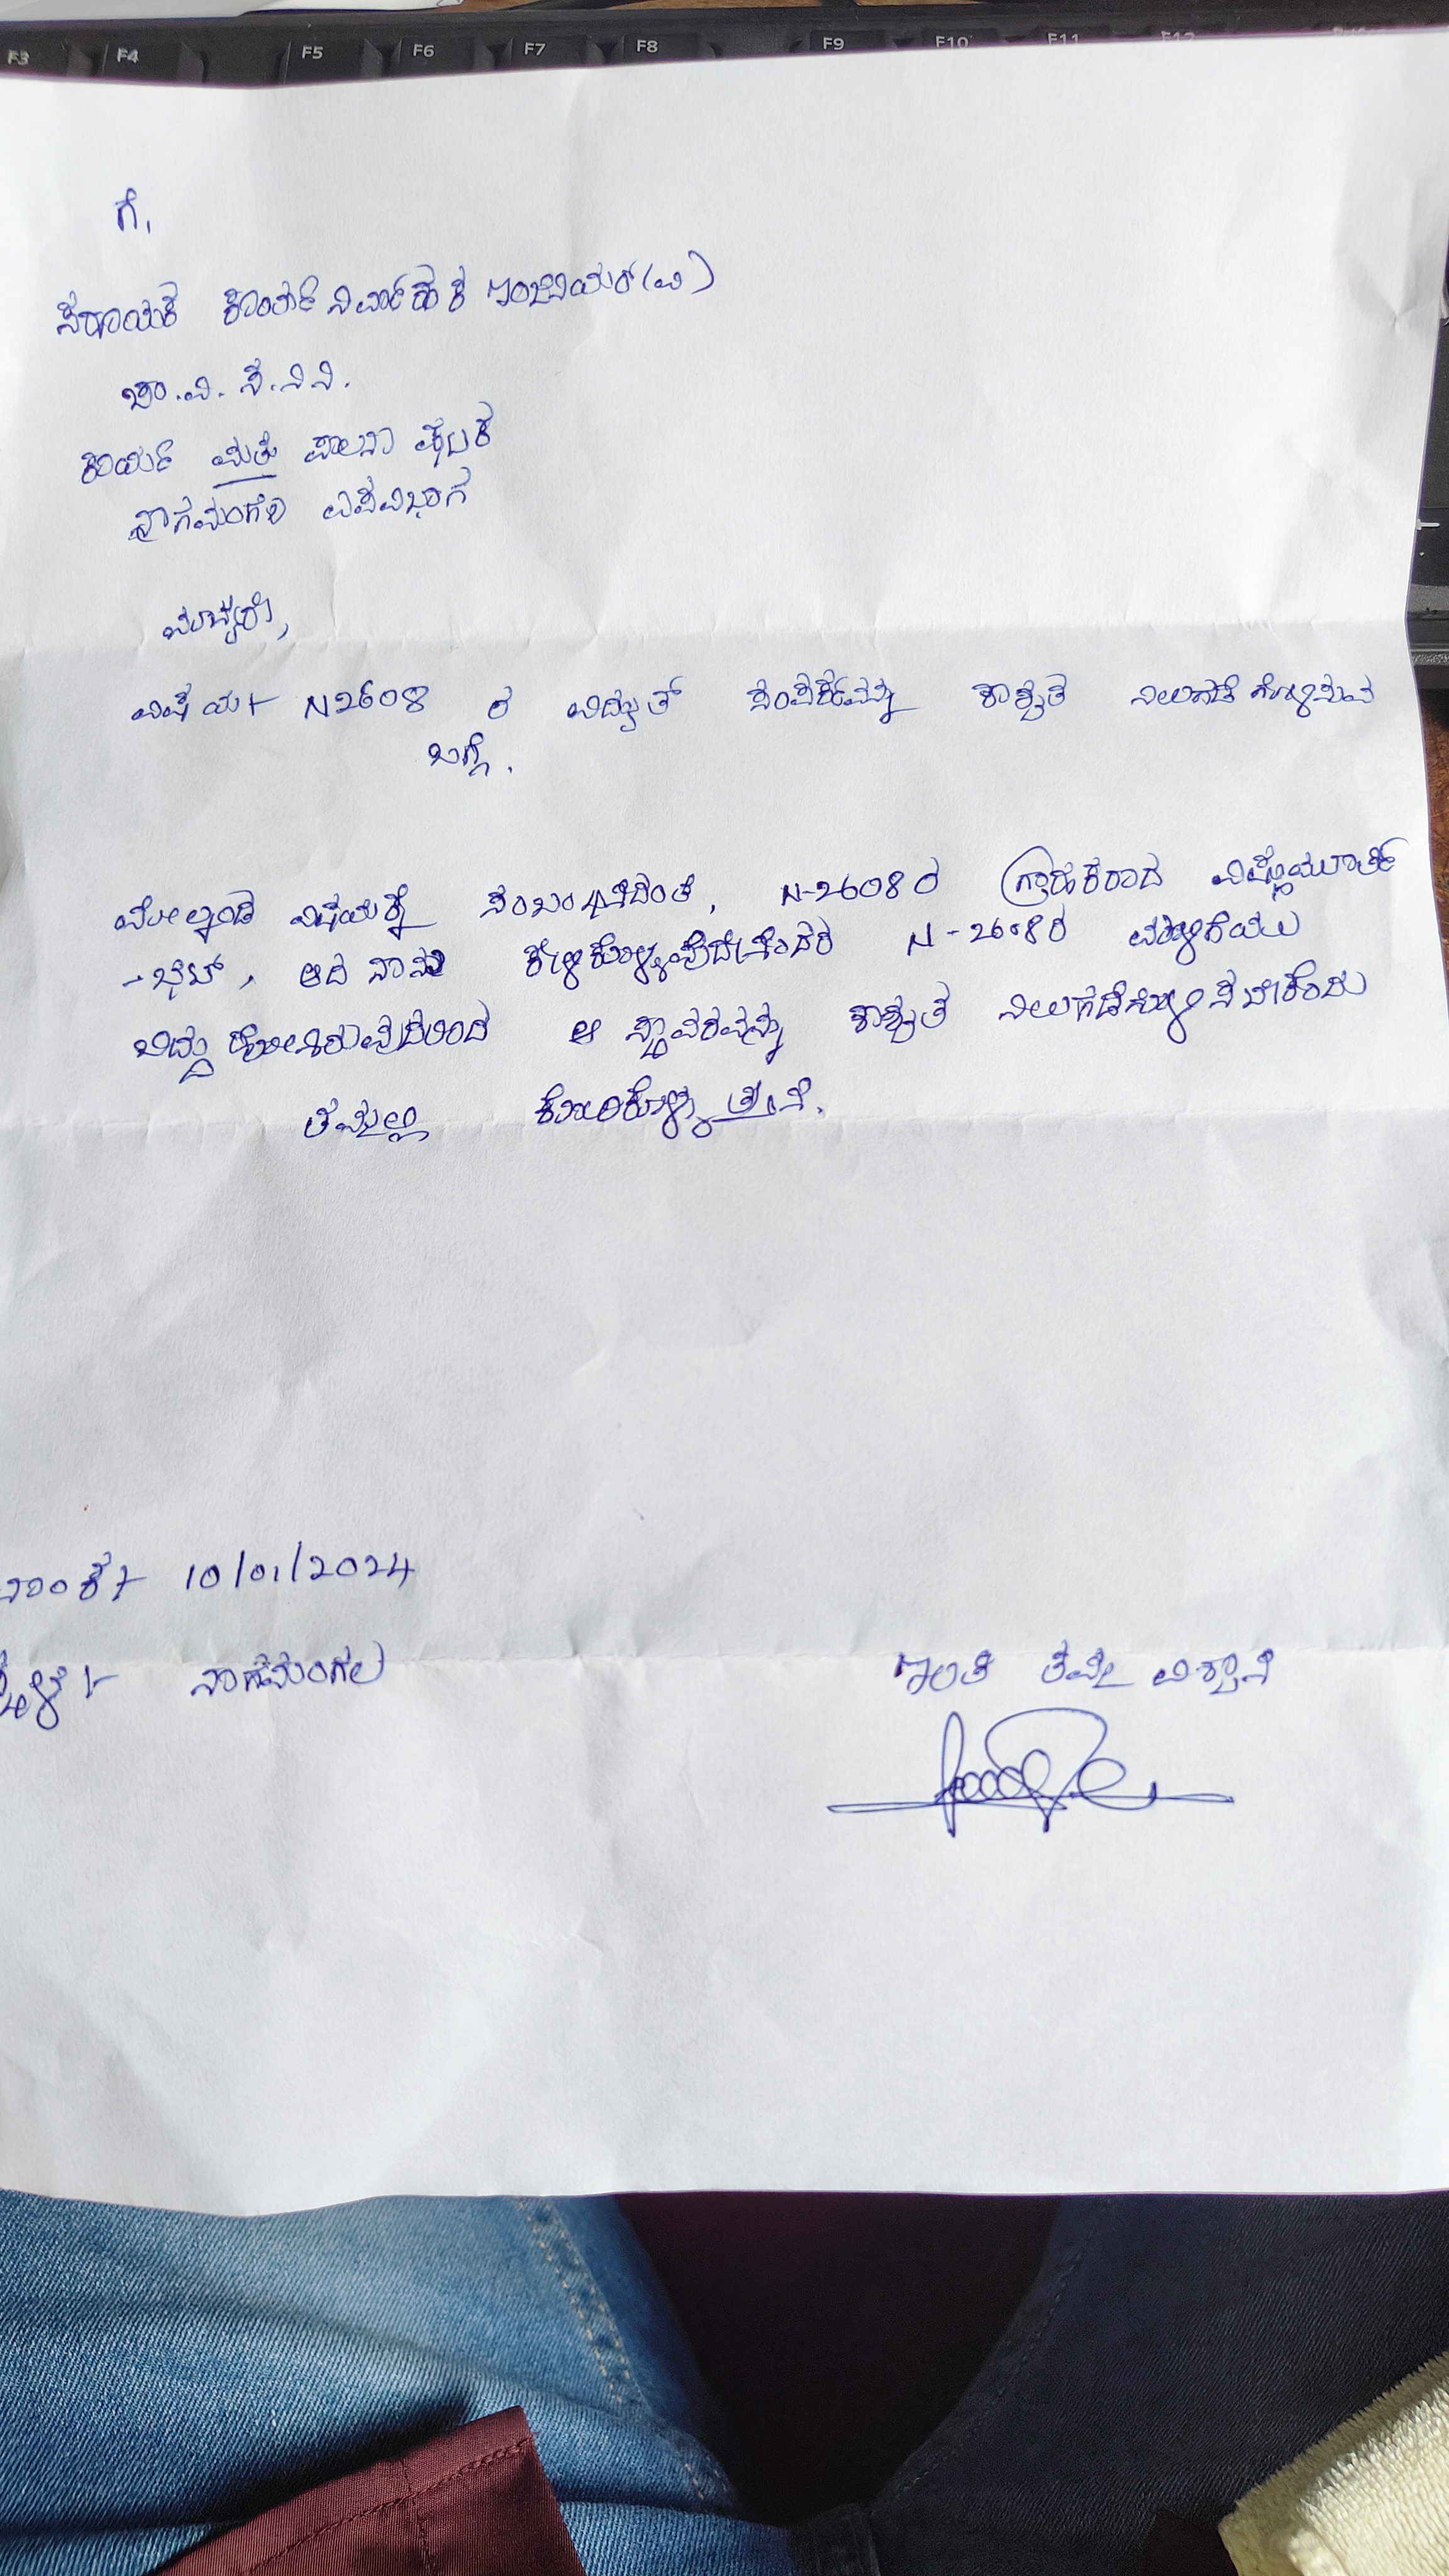 F3 F4 F5 F6 F7 F8 F9 F10 F11 F12
ಗೆ,
ಸಹಾಯಕ ಕಾರ್ಯನಿರ್ವಾಹಕ ಇಂಜಿನಿಯರ್(ವಿ)
ಚಾ.ವಿ.ಸ.ನಿ.ನಿ.
ಕಾರ್ಯ ಮತ್ತು ಪಾಲನಾ ಘಟಕ
ನಾಗಮಂಗಲ ಉಪವಿಭಾಗ
ಮಾನ್ಯರೇ,
ವಿಷಯ:- N2608 ರ ವಿದ್ಯುತ್ ಸಂಪರ್ಕವನ್ನು ಶಾಶ್ವತ ನಿಲುಗಡೆಗೊಳ್ಳಿಸುವ
ಬಗ್ಗೆ.
ಮೇಲ್ಕಂಡ ವಿಷಯಕ್ಕೆ ಸಂಬಂಧಿಸಿದಂತೆ, N-2608 ರ ಗ್ರಾಹಕರಾದ
-ಭಟ್, ಆದ ನಾನು ಕೇಳಿಕೊಳ್ಳುವುದೇನೆಂದರೆ N-2608ರ ಮಳಿಗೆಯು
ಬಿದ್ದು ಹೋಗಿರುವುದರಿಂದ ಆ ಸ್ಥಾವರವನ್ನು ಶಾಶ್ವತ ನಿಲುಗಡೆಗೊಳಿಸಬೇಕೆಂದು
ತಮ್ಮಲ್ಲಿ ಕೋರಿಕೊಳ್ಳುತ್ತೇನೆ.
ನಾಂಕ:- 10/01/2024
ಸ್ಥಳ:- ನಾಗಮಂಗಲ
ಇಂತಿ ತಮ್ಮ ವಿಶ್ವಾಸಿ